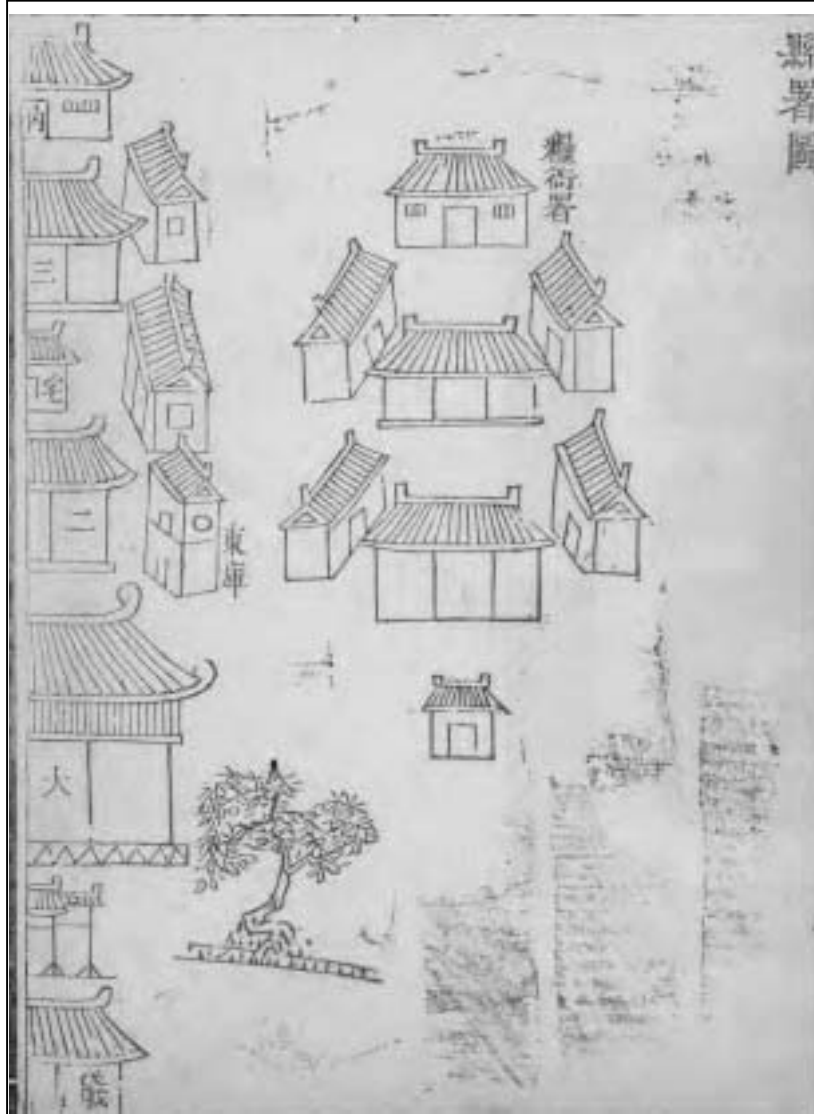 縣署圖
糧衙署
東庫
內
三
宅
二
大
儀